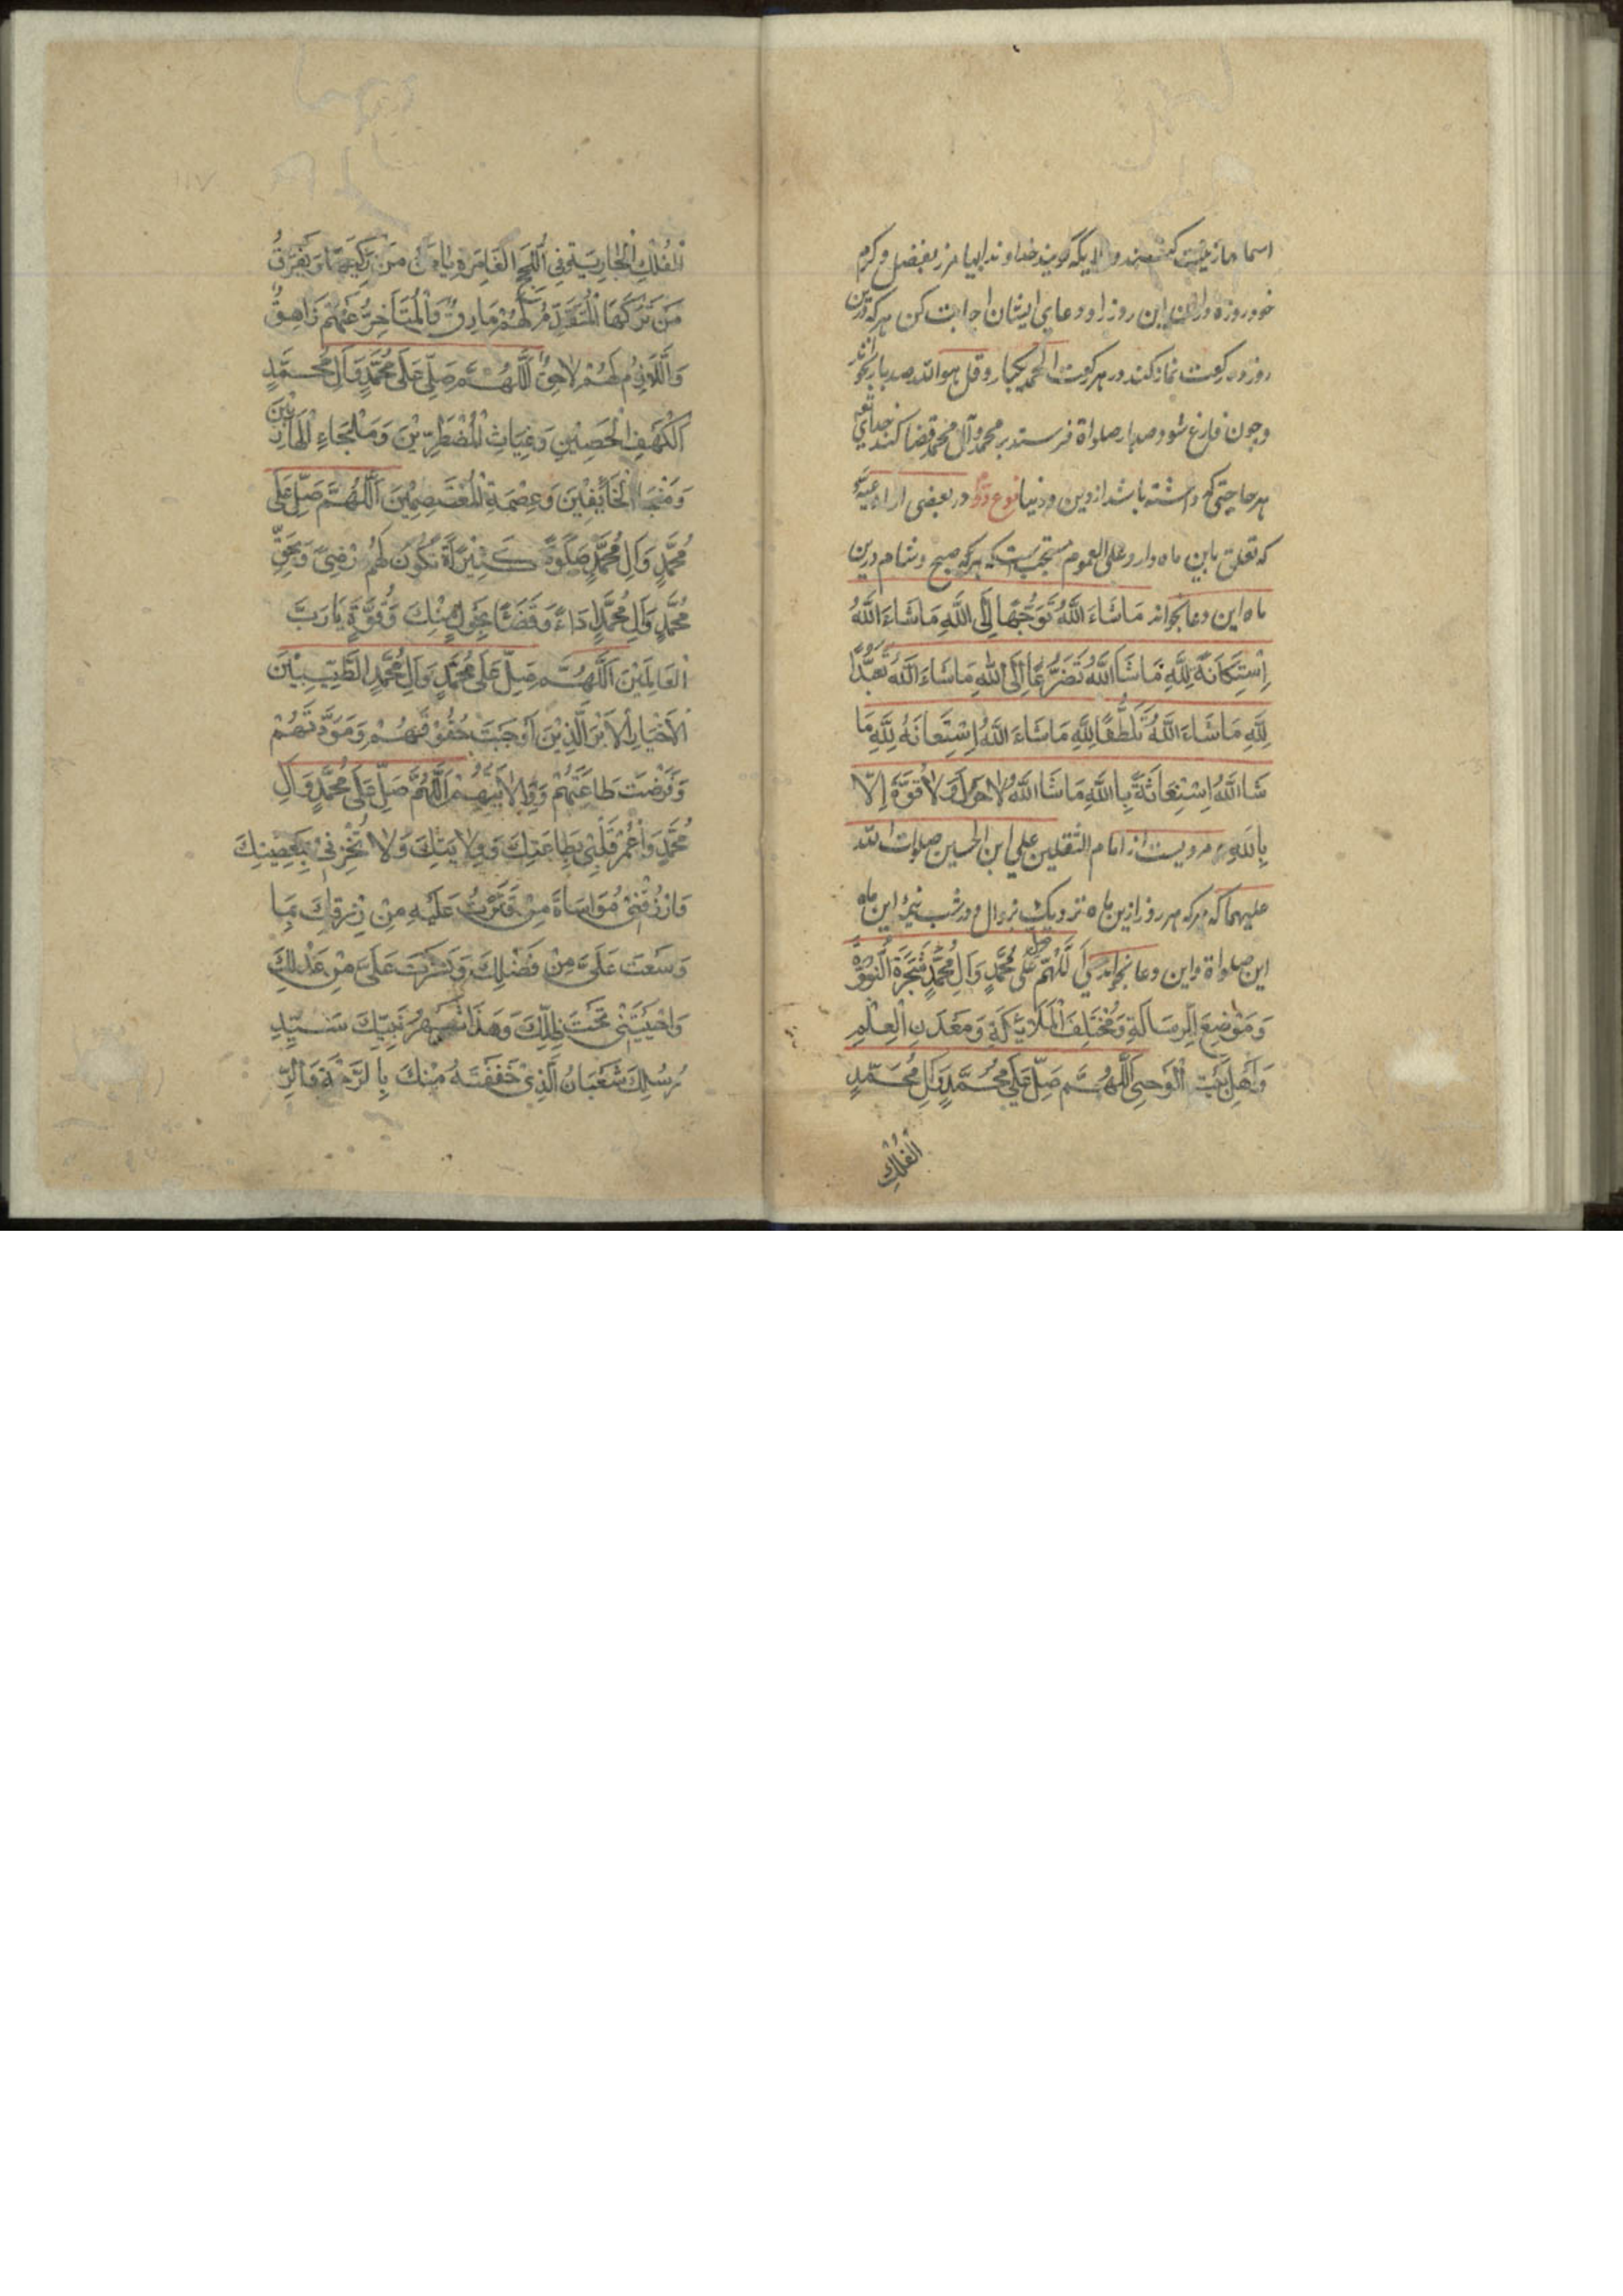 اسما‌نها زینت کنند و ملایکه گویند خداوندا بیامرز بفضل و کرم
خود روزه داران این روز را و دعای ایشان اجابت کن هر که درین
روز دو رکعت نماز کند در هر رکعت الحمد یکبار و قل هو الله صد بار بخواند
و چون فارغ شود صد بار صلواة فرستد بر محمد و آل محمد قضا کند خدای تعه
هر حاجتی که داشته باشد از دین و دنیا نوع در بعضی از ادعیه
که تعلق باین ماه دارد علی العموم مستحبست که هر که صبح و شام درین
ماه این دعا بخواند مَاشَاءَ اللَّهُ تَوَجُّهًا اِلَى اللَّهِ مَاشَاءَ اللَّهُ
اِسْتِكَانَةً لِلَّهِ مَاشَاَ اللَّهُ تَضَرُّعًا اِلَى اللهِ مَاشَاءَ اللَّهُ تَعَبُّدًا
لِلَّهِ مَاشَاءَ اللَّهُ تَلَطُّفًا لِلَّهِ مَاشَاءَ اللَّهُ اِسْتِعَانَةً لِلَّهِ مَا
شَاَ اللَّهُ اِسْتِغَاثَةً بِاللَّهِ مَاشَا اللَّهُ لَا حَوْلَ وَلَا قُوَّةَ اِلَّا
بِاللَّهِ مرویست از امام الثقلین علی ابن الحسین صلوات الله
علیهما که هر که هر روز ازین ماه نزدیک بزوال و در شب نیمهٔ این ماه
این صلواة و این دعا بخواند اَللَّهُمَّ صل عَلَى مُحَمَّدٍ وَآلِ مُحَمَّدٍ شَجَرَةِ النُّبُوَّةِ
وَمَوْضِعِ الرِّسَالَةِ وَمُخْتَلَفِ الْمَلَائِكَةِ وَمَعْدَنِ الْعِلْمِ
وَاَهْلِ بَيْتِ الْوَحْيِ اَللَّهُمَّ صَلِّ عَلَى مُحَمَّدٍ وَآلِ مُحَمَّدٍ
الْفُلْكِ
الْفُلْكِ الْجَارِيَةِ فِي اللُّجَجِ الْغَامِرَةِ يَامَنُ مَنْ رَكِبَهَا وَيَغْرَقُ
مَنْ تَرَكَهَا الْمُتَقَدِّمُ لَهُمْ مَارِقٌ وَالْمُتَأَخِرُّ عَنْهُمْ زَاهِقٌ
وَاللَّازِمُ لَهُمْ لَاحِقٌ اَللَّهُمَّ صَلِّ عَلَى مُحَمَّدٍ وَآلِ مُحَمَّدٍ
اَلْكَهْفِ الْحَصِيْنِ وَغِيَاثِ الْمُضْطَرِّيْنَ وَمَلْجَاءِ الْهَارِبِيْنَ
وَمَنْجَا الْخَائِفِيْنَ وَعِصْمَةِ الْمُعْتَصِمِيْنَ اَللَّهُمَّ صَلِّ عَلَى
مُحَمَّدٍ وَآلِ مُحَمَّدٍ صَلَوةً كَثِيْرَةً تَكُوْنَ لَهُمْ رِضًى وَبِحَقِّ
مُحَمَّدٍ وَآلِ مُحَمَّدٍ اَدَاءً وَقَضَاءً بِحَوْلٍ مِنْكَ وَقُوَّةٍ يَارَبَّ
الْعَالَمِيْنَ اَللَّهُمَّ صَلِّ عَلَى مُحَمَّدٍ وَآلِ مُحَمَّدٍ الطَّيِّبِيْنَ
الْاَخْيَارِ الَّذِيْنَ اَوْجَبْتَ حُقُوْقَهُمْ وَمَوَدَّتَهُمْ
وَفَرَضْتَ طَاعَتَهُمْ وَوِلَايَتَهُمْ اَللَّهُمَّ صَلِّ عَلَى مُحَمَّدٍ وَآلِ
مُحَمَّدٍ وَاعْمُرْ قَلْبِيْ بِطَاعَتِكَ وَوِلَايَتِكَ وَلَا تُخْزِنِيْ بِمَعْصِيَتِكَ
وَارْزُقْنِيْ مُوَاسَاةَ مَنْ قَتَّرْتَ عَلَيْهِ مِنْ رِزْقِكَ بِمَا
وَسَعْتَ عَلَيَّ مِنْ فَضْلِكَ وَنَشَرْتَ عَلَيَّ مِنْ عَدْلِكَ
وَاحْيَيْتَنِيْ تَحْتَ ظِلِّكَ وَهَذَا شَهْرُ نَبِيِّكَ سَيِّدِ
رُسُلِكَ شَعْبَانُ الَّذِيْ حَفَفْتَهُ مِنْكَ بِالرَّحْمَةِ وَالرِّ